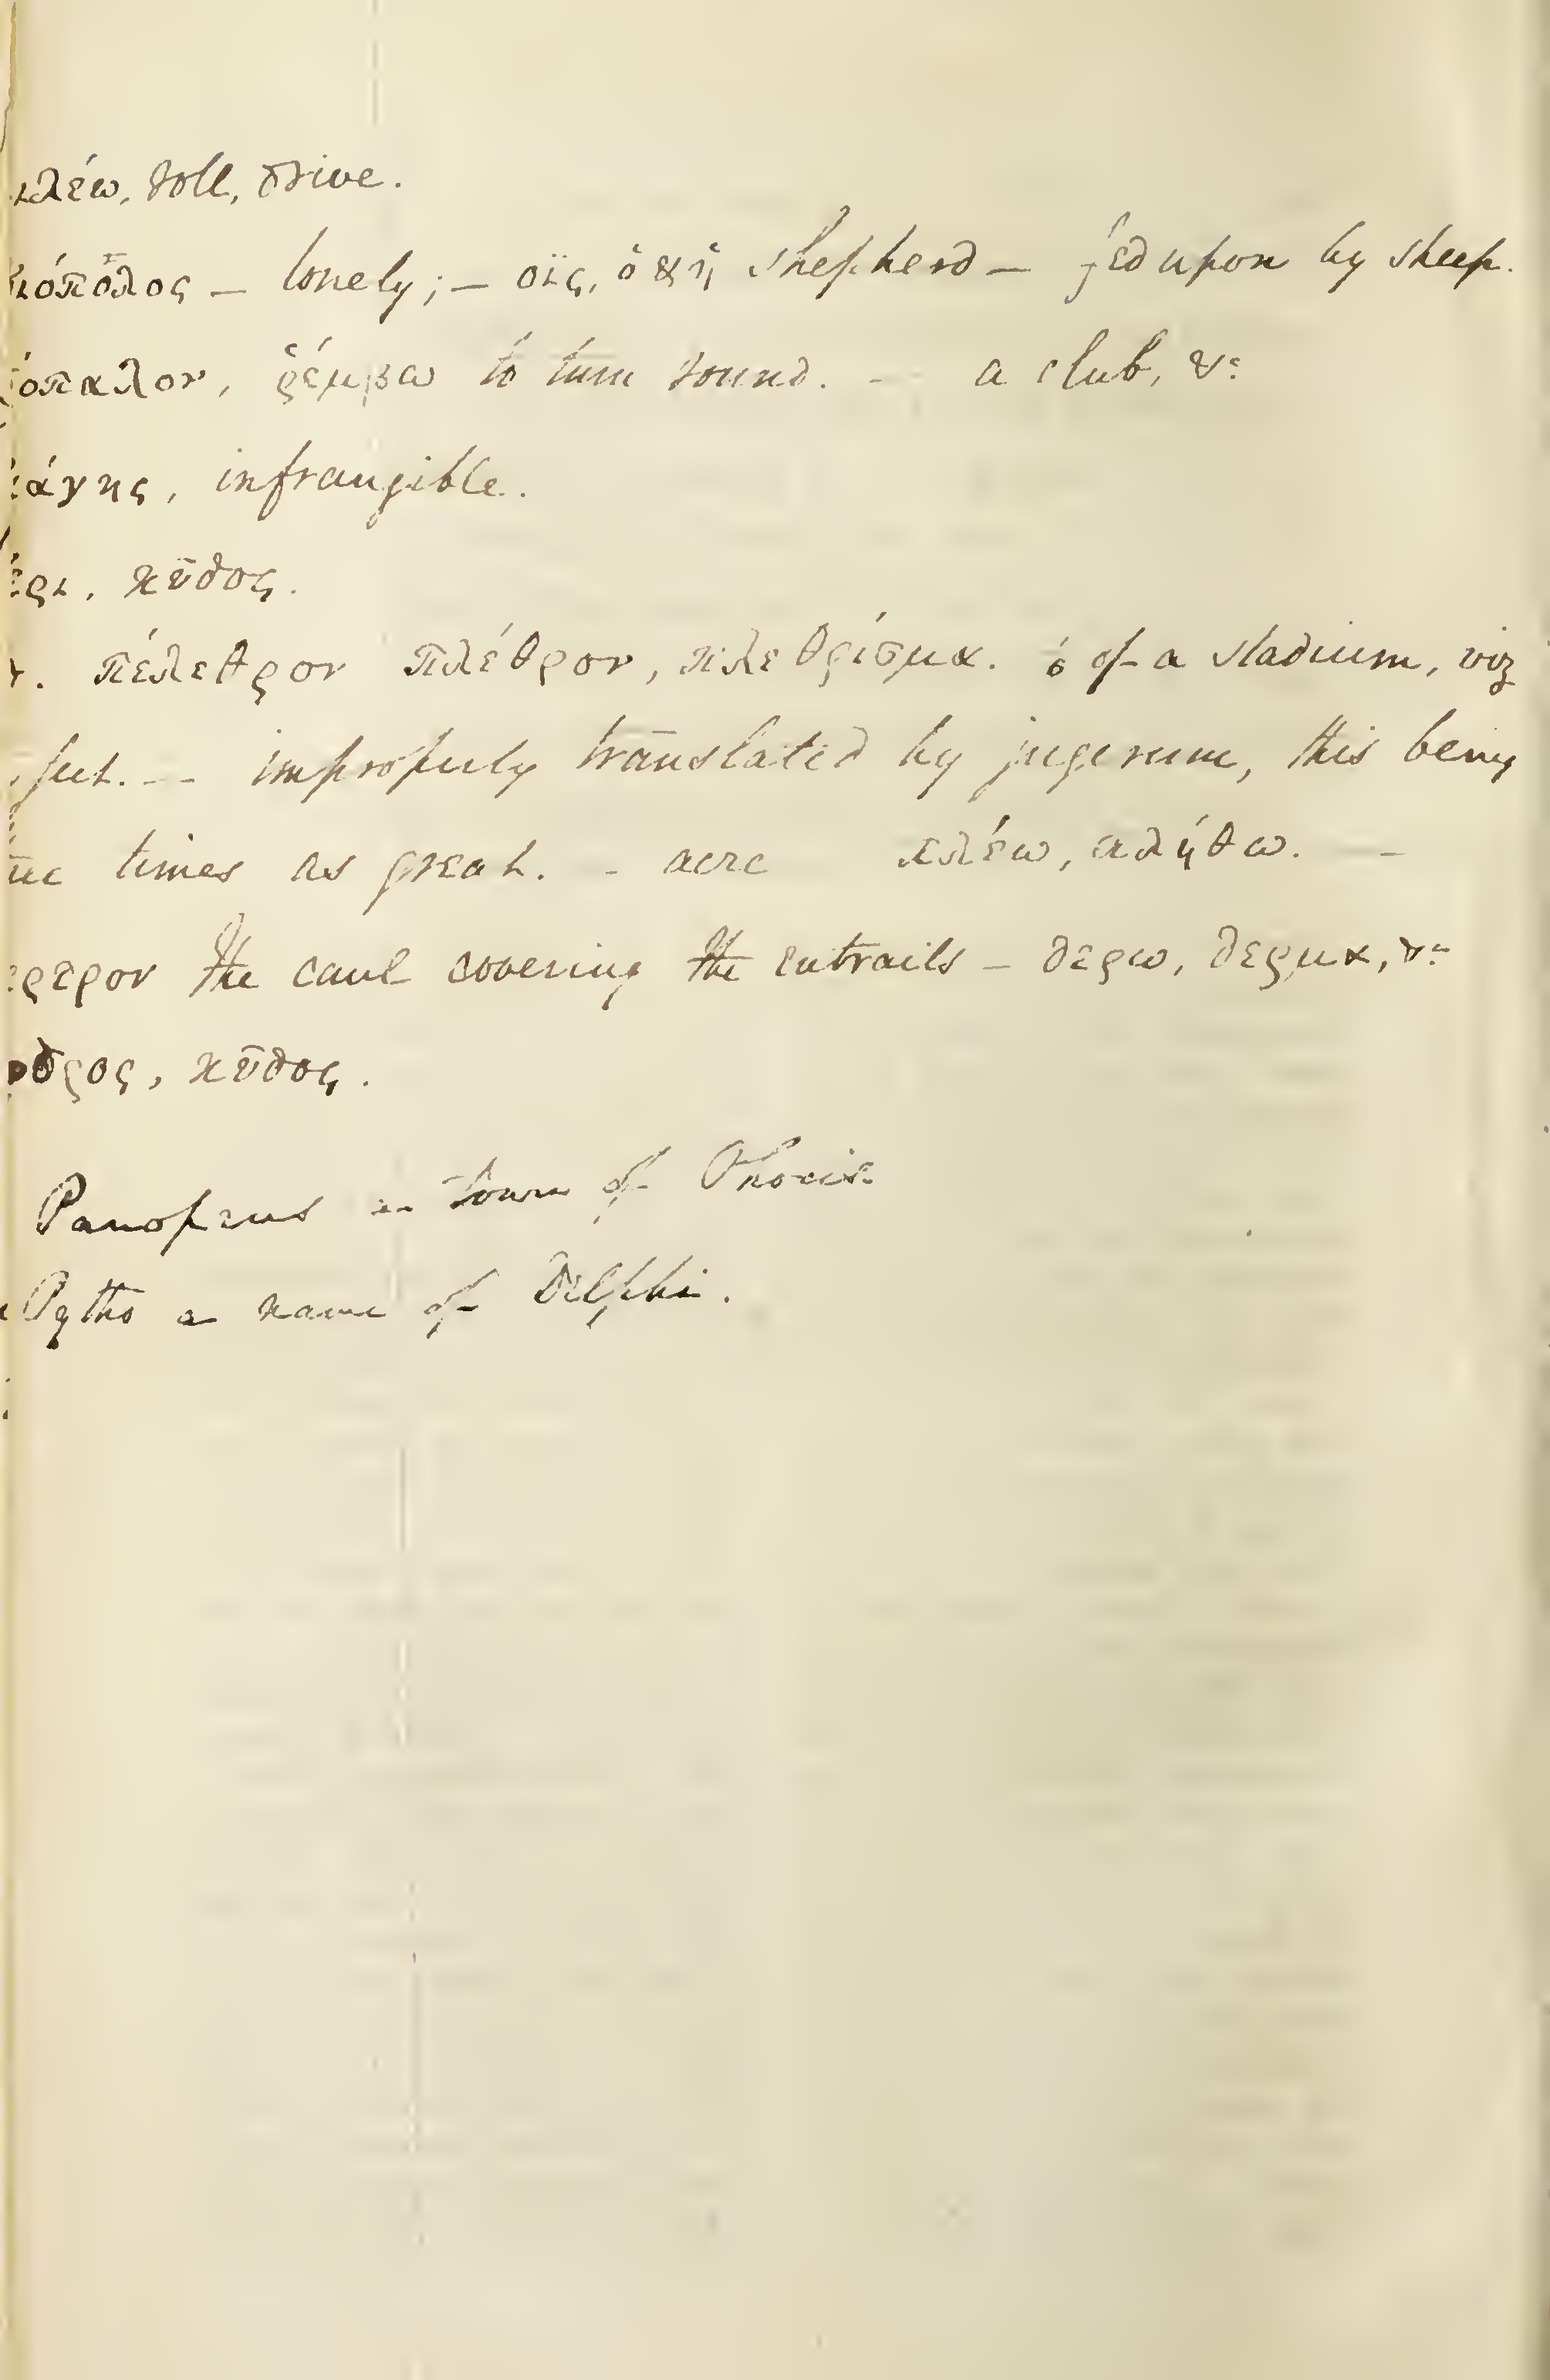 ιλέω, roll, drive.
ιόπολος — lonely; — οϊς, ὁ & ἡ shepherd — fed upon by sheep.
όπαλον, ῥέμβω to turn round. — a club, &c
άγης, infrangible.
έρι, κῦδος.
πέλεθρον πλέθρον, πλεθρίσμα. 1/6 of a stadium, viz
feet. -- improperly translated by jugerum, this being
times as great. - acre πλέω, πλήθω. —
ερτρον the caul covering the entrails — δερω, δερμα, &c
δρος, κῦδος.
Panopeus a town of Phocis
Pytho a name of Delphi.